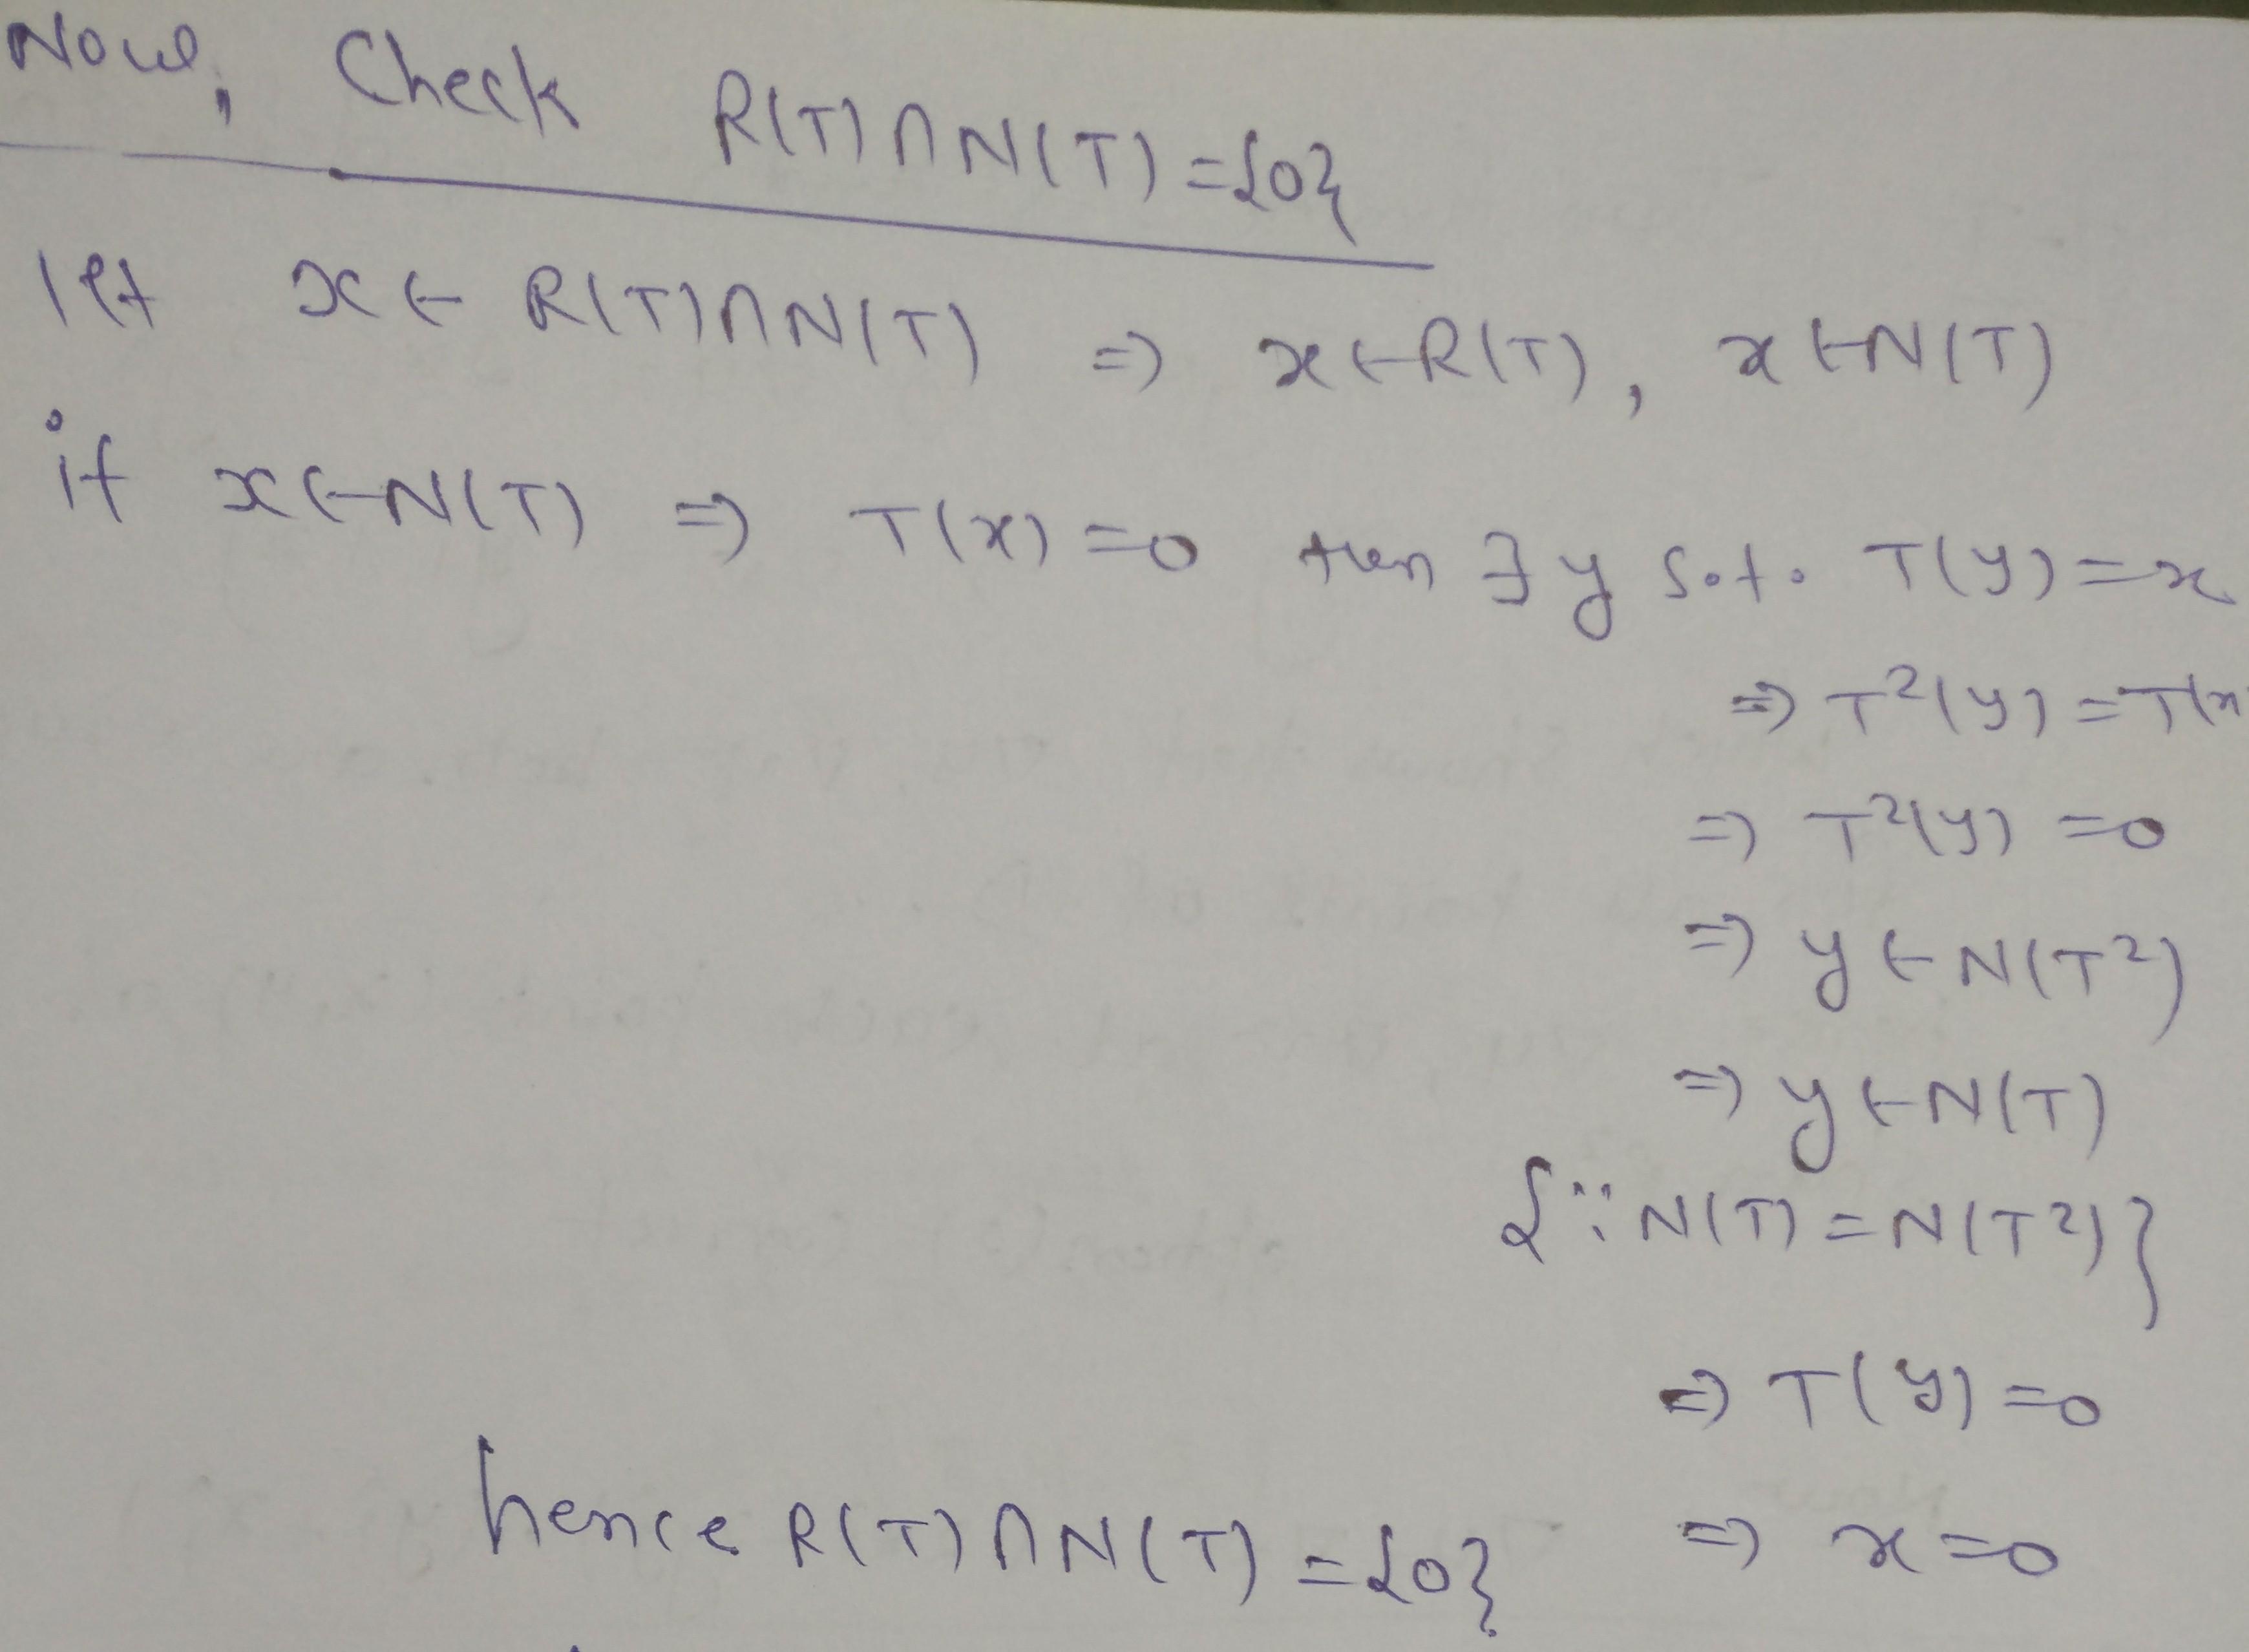 Now, Check R(T)∩N(T)={0}
let x∈R(T)∩N(T) ⇒ x∈R(T), x∈N(T)
if x∈N(T) ⇒ T(x)=0 then ∃ y s.t. T(y)=x
⇒ T²(y)=T(x
⇒ T²(y)=0
⇒ y∈N(T²)
⇒ y∈N(T)
{∵ N(T)=N(T²)}
⇒ T(y)=0
hence R(T)∩N(T)={0} ⇒ x=0